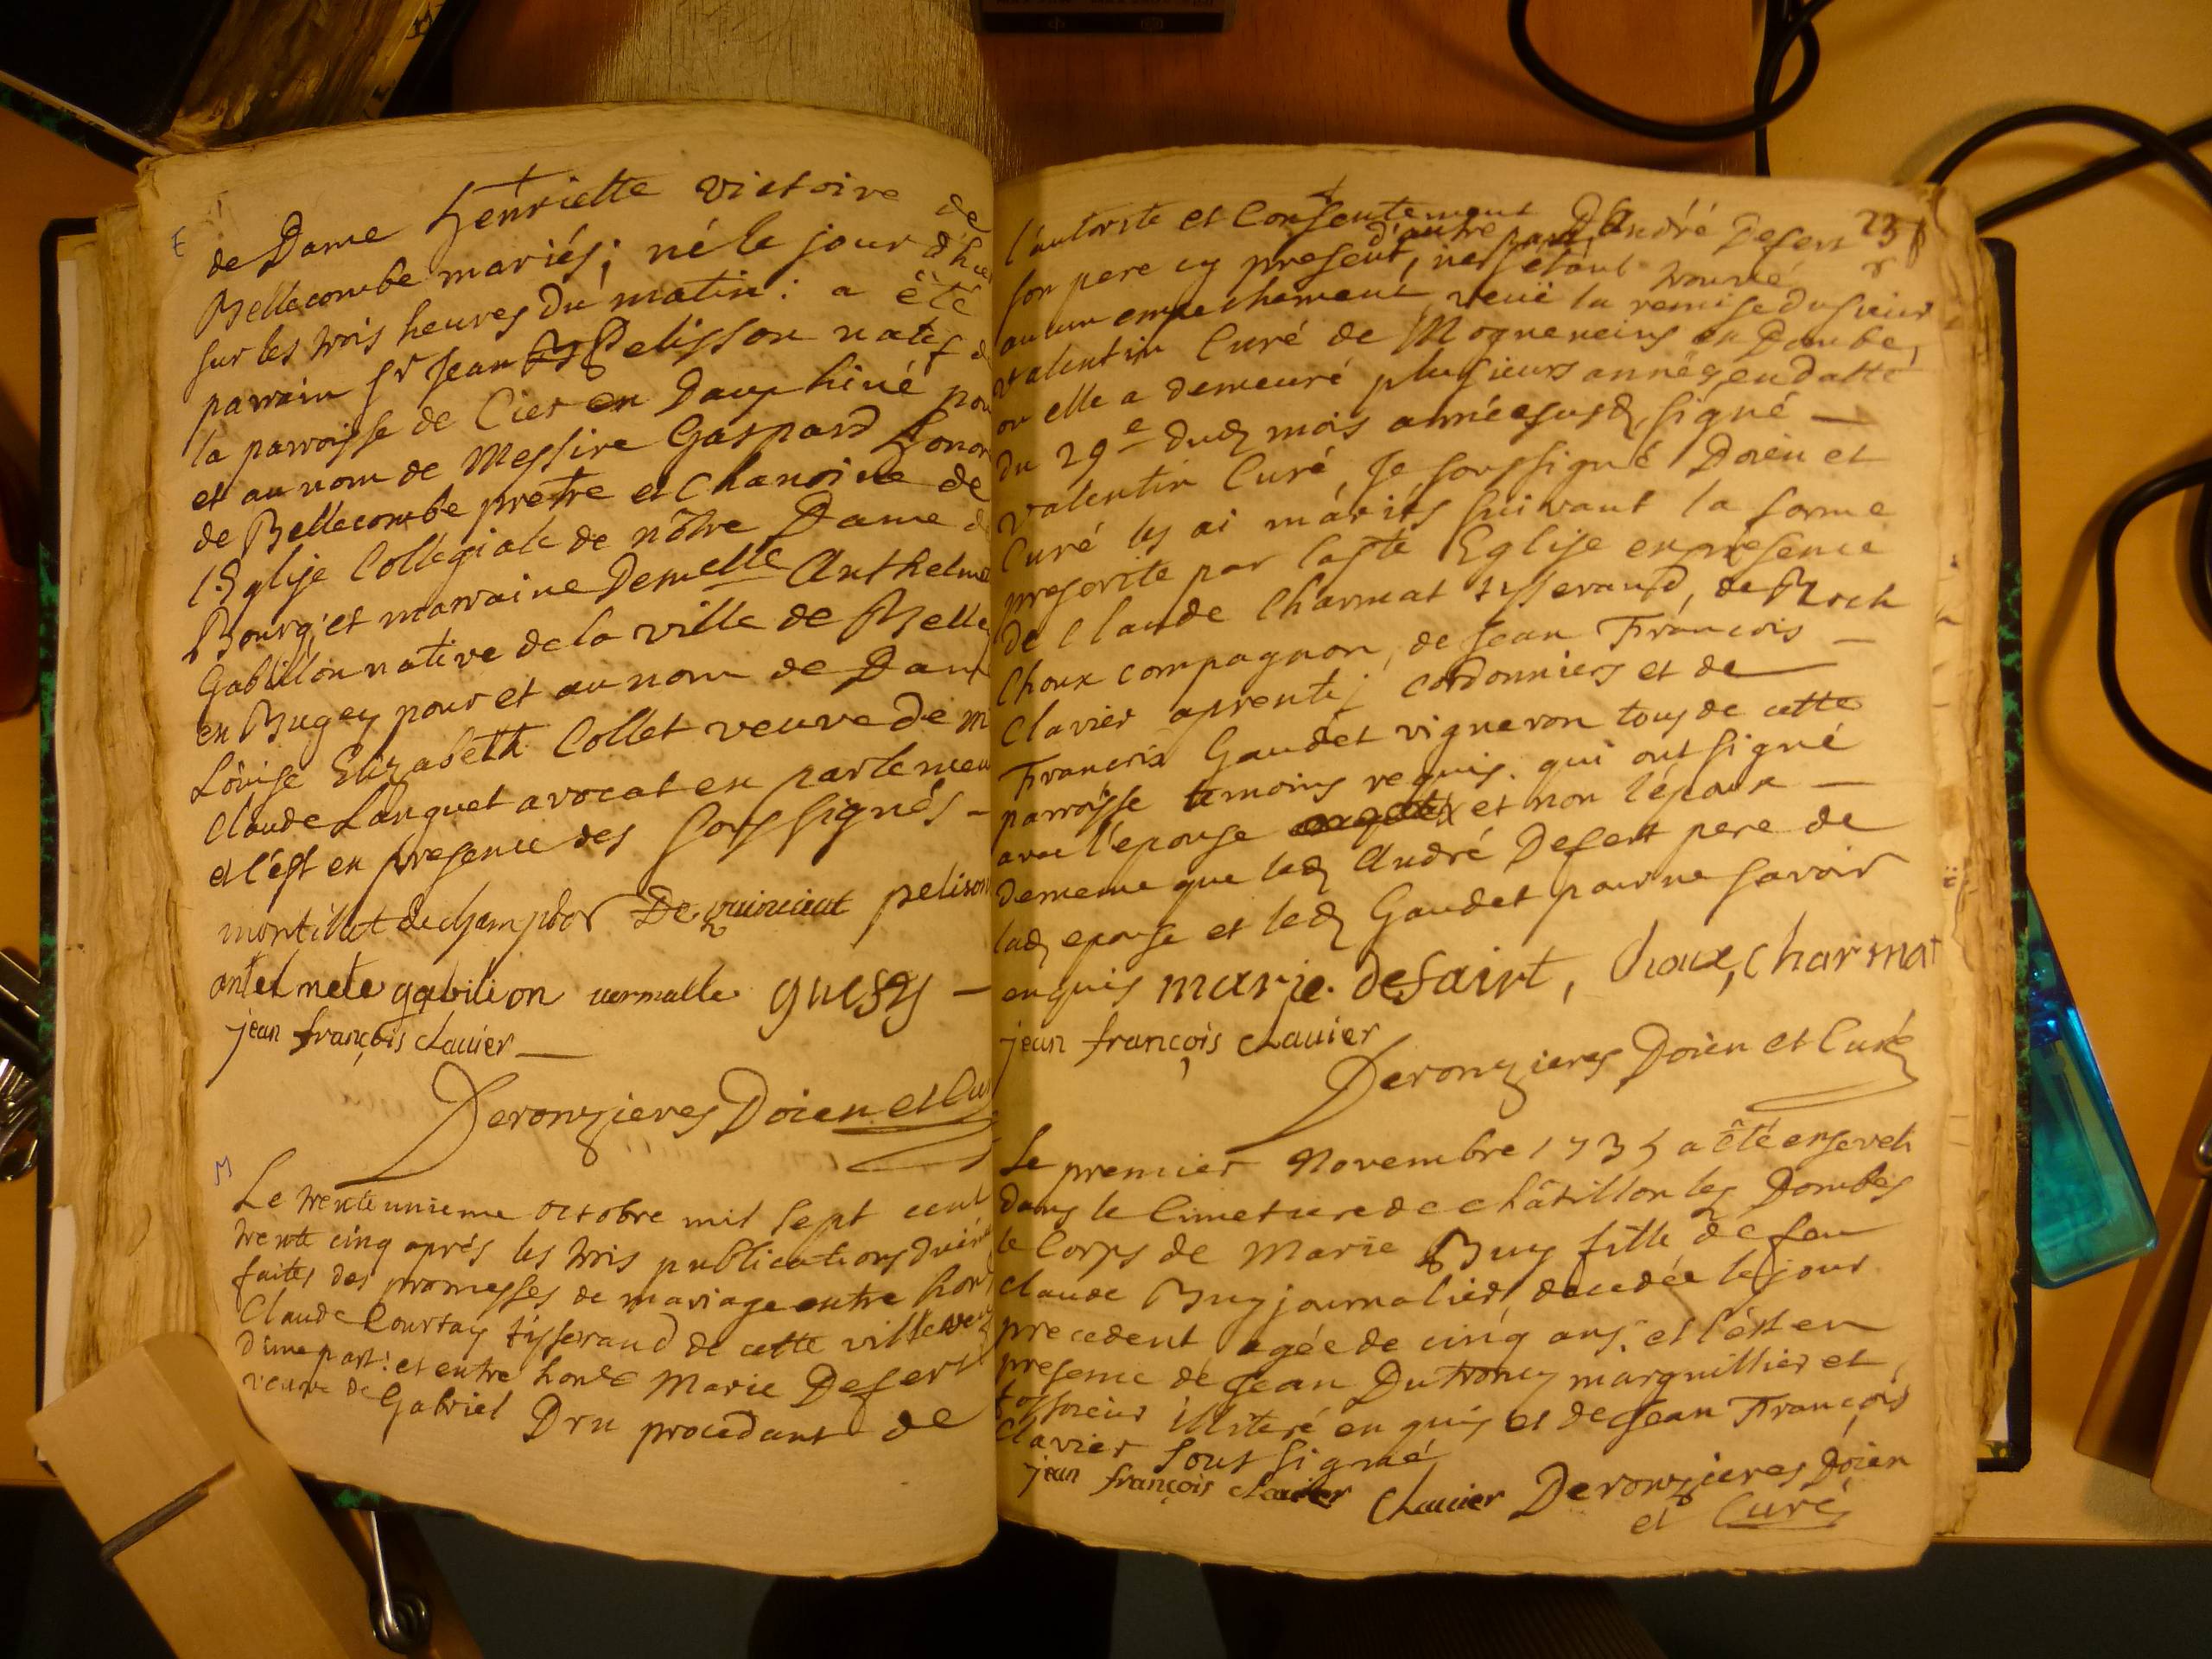 de Dame Henriette Victoire de
Bellecombe mariés; né le jour d'hier
sur les trois heures du matin: a êté
parrain Sr Jean Pelisson natif de
la parroisse de Cier en Dauphiné pour
et au nom de Messire Gaspard Honoré
de Bellecombe pretre et Chanoine de
l'Eglise Collegiale de nôtre Dame de
Bourg; et marraine Demelle Anthelmette
Gabillon native de la ville de Belley
en Bugey pour et au nom de Dame
Loüise Elizabeth Collet veuve de
Claude Languet avocat en parlement
et c'est en presence des soussignés -
montillet dechampdor pelison
antelmete gabilion vermalle guesy -
jean françois clavier
Deronzieres Doien et Curé
M
Le trente unieme octobre mil sept cent
trente cinq aprés les trois publications
faites des promesses de mariage entre
Claude Courtay tisserand de cette ville
d'une part: et entre honte Marie Defert
veuve de Gabriel Dru procedant de
235
l'autorité et Consentement d'André Defert
d'autre part,
son pere cy present, ne s'etant trouvé
aucun empechement, veüe la remise du sieur
Valentin Curé de Mogneneins en Dombe,
ou elle a demeuré plusieurs années, en datte
du 29e dud mois année susd, signé —
Valentin Curé, Je soussigné Doien et
Curé les ai mariés suivant la forme
prescrite par laste Eglise en presence
de Claude Charmat tisserand, de Roch
Choux compagnon, de Jean François —
Clavier aprentif cordonniers et de —
François Gaudet vigneron tous de cette
parroisse temoins requis. qui ont signé
avec l'epouse et non l'époux —
de meme que led André Defert pere de
lad epouse et led Gaudet pour ne savoir
enquis marie defairt, Choux, Charmat
jean françois clavier
Deronzieres Doien et Curé
Le premier Novembre 1735 a êté enseveli
dans le Cimetiere de châtillon les Dombes
le Corps de Marie Buy fille de feu
Claude Buy journalier, decedée le jour
precedent agée de cinq ans. et c'est en
presence de Jean Dutroncy marguillier et
fossoieur illiteré enquis et de Jean François
Clavier soussigné
jean françois Clavier Deronzieres Doien
et Curé